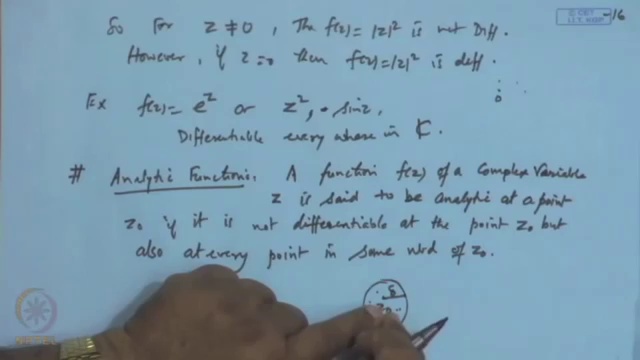 © CET
I.I.T. KGP
-16
So For z ≠ 0, The f(z) = |z|² is not Diff.
However, if z = 0 Then f(z) = |z|² is diff.
0
Ex f(z) = e^z or z², sin z,
Differentiable every where in ℂ.
# Analytic Function: A function f(z) of a Complex Variable
z is said to be analytic at a point
z₀ if it is not differentiable at the point z₀ but
also at every point in some nbd of z₀.
δ
z₀